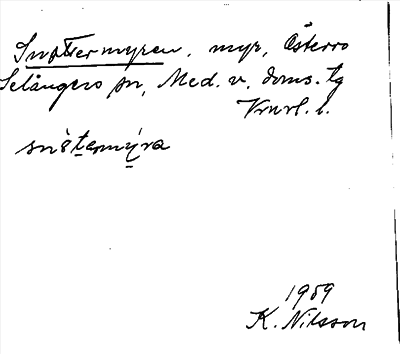 Snottermyren, myr, Österro
Selångers sn, Med. v. doms. tg
Vrnrl. l.
snåtemýra
1959
K. Nilsson